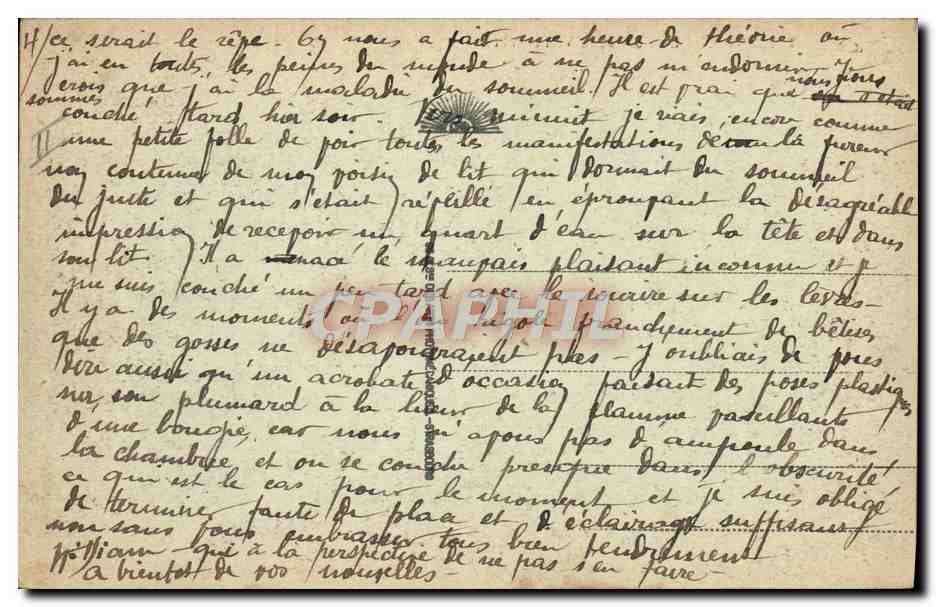 4/ ce serait le rêve. On nous a fait une heure de théorie où
j'ai eu toutes les peines du monde à ne pas m'endormir. Je
crois que j'ai la maladie du sommeil. Il est vrai que nous nous
sommes
couché tard hier soir. Vers minuit je vais encore comme
II
une petite folle de voir toutes les manifestations de la fureur
non contenue de mon voisin de lit qui dormait du sommeil
du juste et qui s'était réveillé en éprouvant la désagréable
impression de recevoir un quart d'eau sur la tête et dans
son lit. Il a menacé le mauvais plaisant inconnu et je
me suis couché un peu tard avec le sourire sur les lèvres -
Il y a des moments où l'on rigole franchement de bêtises
que des gosses ne désavoueraient pas - J'oubliais de vous
dire aussi qu'un acrobate d'occasion faisait des poses plastiques
sur son plumard à la lueur de la flamme vacillante
d'une bougie, car nous n'avons pas d'ampoule dans
la chambre et on se couche presque dans l'obscurité
ce qui est le cas pour le moment et je suis obligé
de terminer faute de place et d'éclairage suffisant
non sans vous embrasser tous bien tendrement
William qui a la perspective de ne pas s'en faire -
A bientôt de vos nouvelles -
CPARPHIL